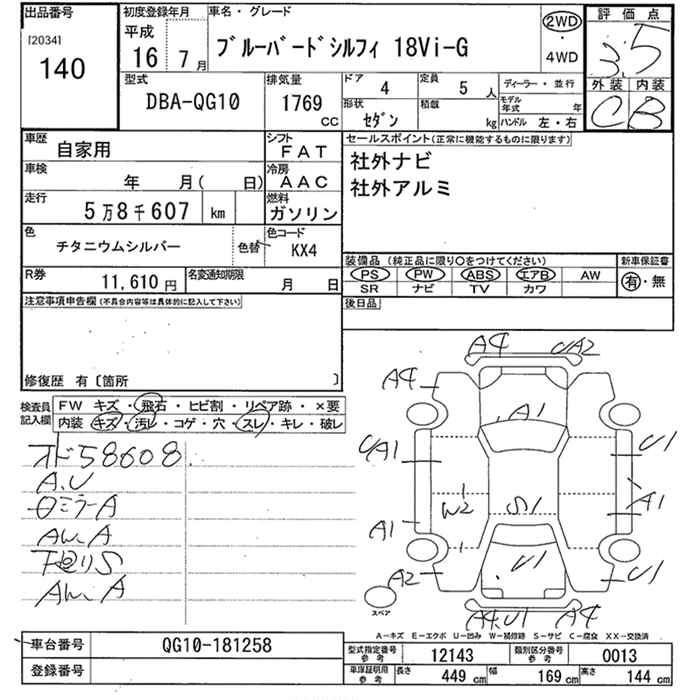 出品番号
[2034]
140
初度登録年月
平成
16 7月
車名・グレード
ブルーバードシルフィ 18Vi-G
2WD
・
4WD
評価点
3.5
外装 内装
C B
型式
DBA-QG10
排気量
1769
CC
ドア
4
定員
5 人
形状
セダン
積載
kg
ディーラー・並行
モデル年式 年
ハンドル 左・右
車歴
自家用
シフト
FAT
車検
年 月( 日)
冷房
AAC
走行
5万8千607 km
燃料
ガソリン
色
チタニウムシルバー
色替
色コード
KX4
R券
11,610 円
名変通知期限
月 日
セールスポイント(正常に機能するものに限ります)
社外ナビ
社外アルミ
装備品(純正品に限り○をつけてください)
PS PW ABS エアB AW
SR ナビ TV カワ
新車保証書
有・無
後日品
注意事項申告欄(不具合内容等は具体的に記入して下さい)
修復歴 有〔箇所 〕
検査員
記入欄
FW キズ・飛石・ヒビ割・リペア跡・×要
内装 キズ・汚レ・コゲ・穴・スレ・キレ・破レ
オド58608
A.U
ロミラーA
AW.A
下廻りS
AW.A
A4
UA2
A4
A1
UA1
U1
W2
S1
A1
A1
A2
U1
U1
A4.U1
A4
スペア
A-キズ E-エクボ U-凹み W-補修跡 S-サビ C-腐食 XX-交換済
車台番号
QG10-181258
登録番号
型式指定番号
参考
12143
類別区分番号
参考
0013
車庫証明用
参考
長さ
449 cm
幅
169 cm
高さ
144 cm